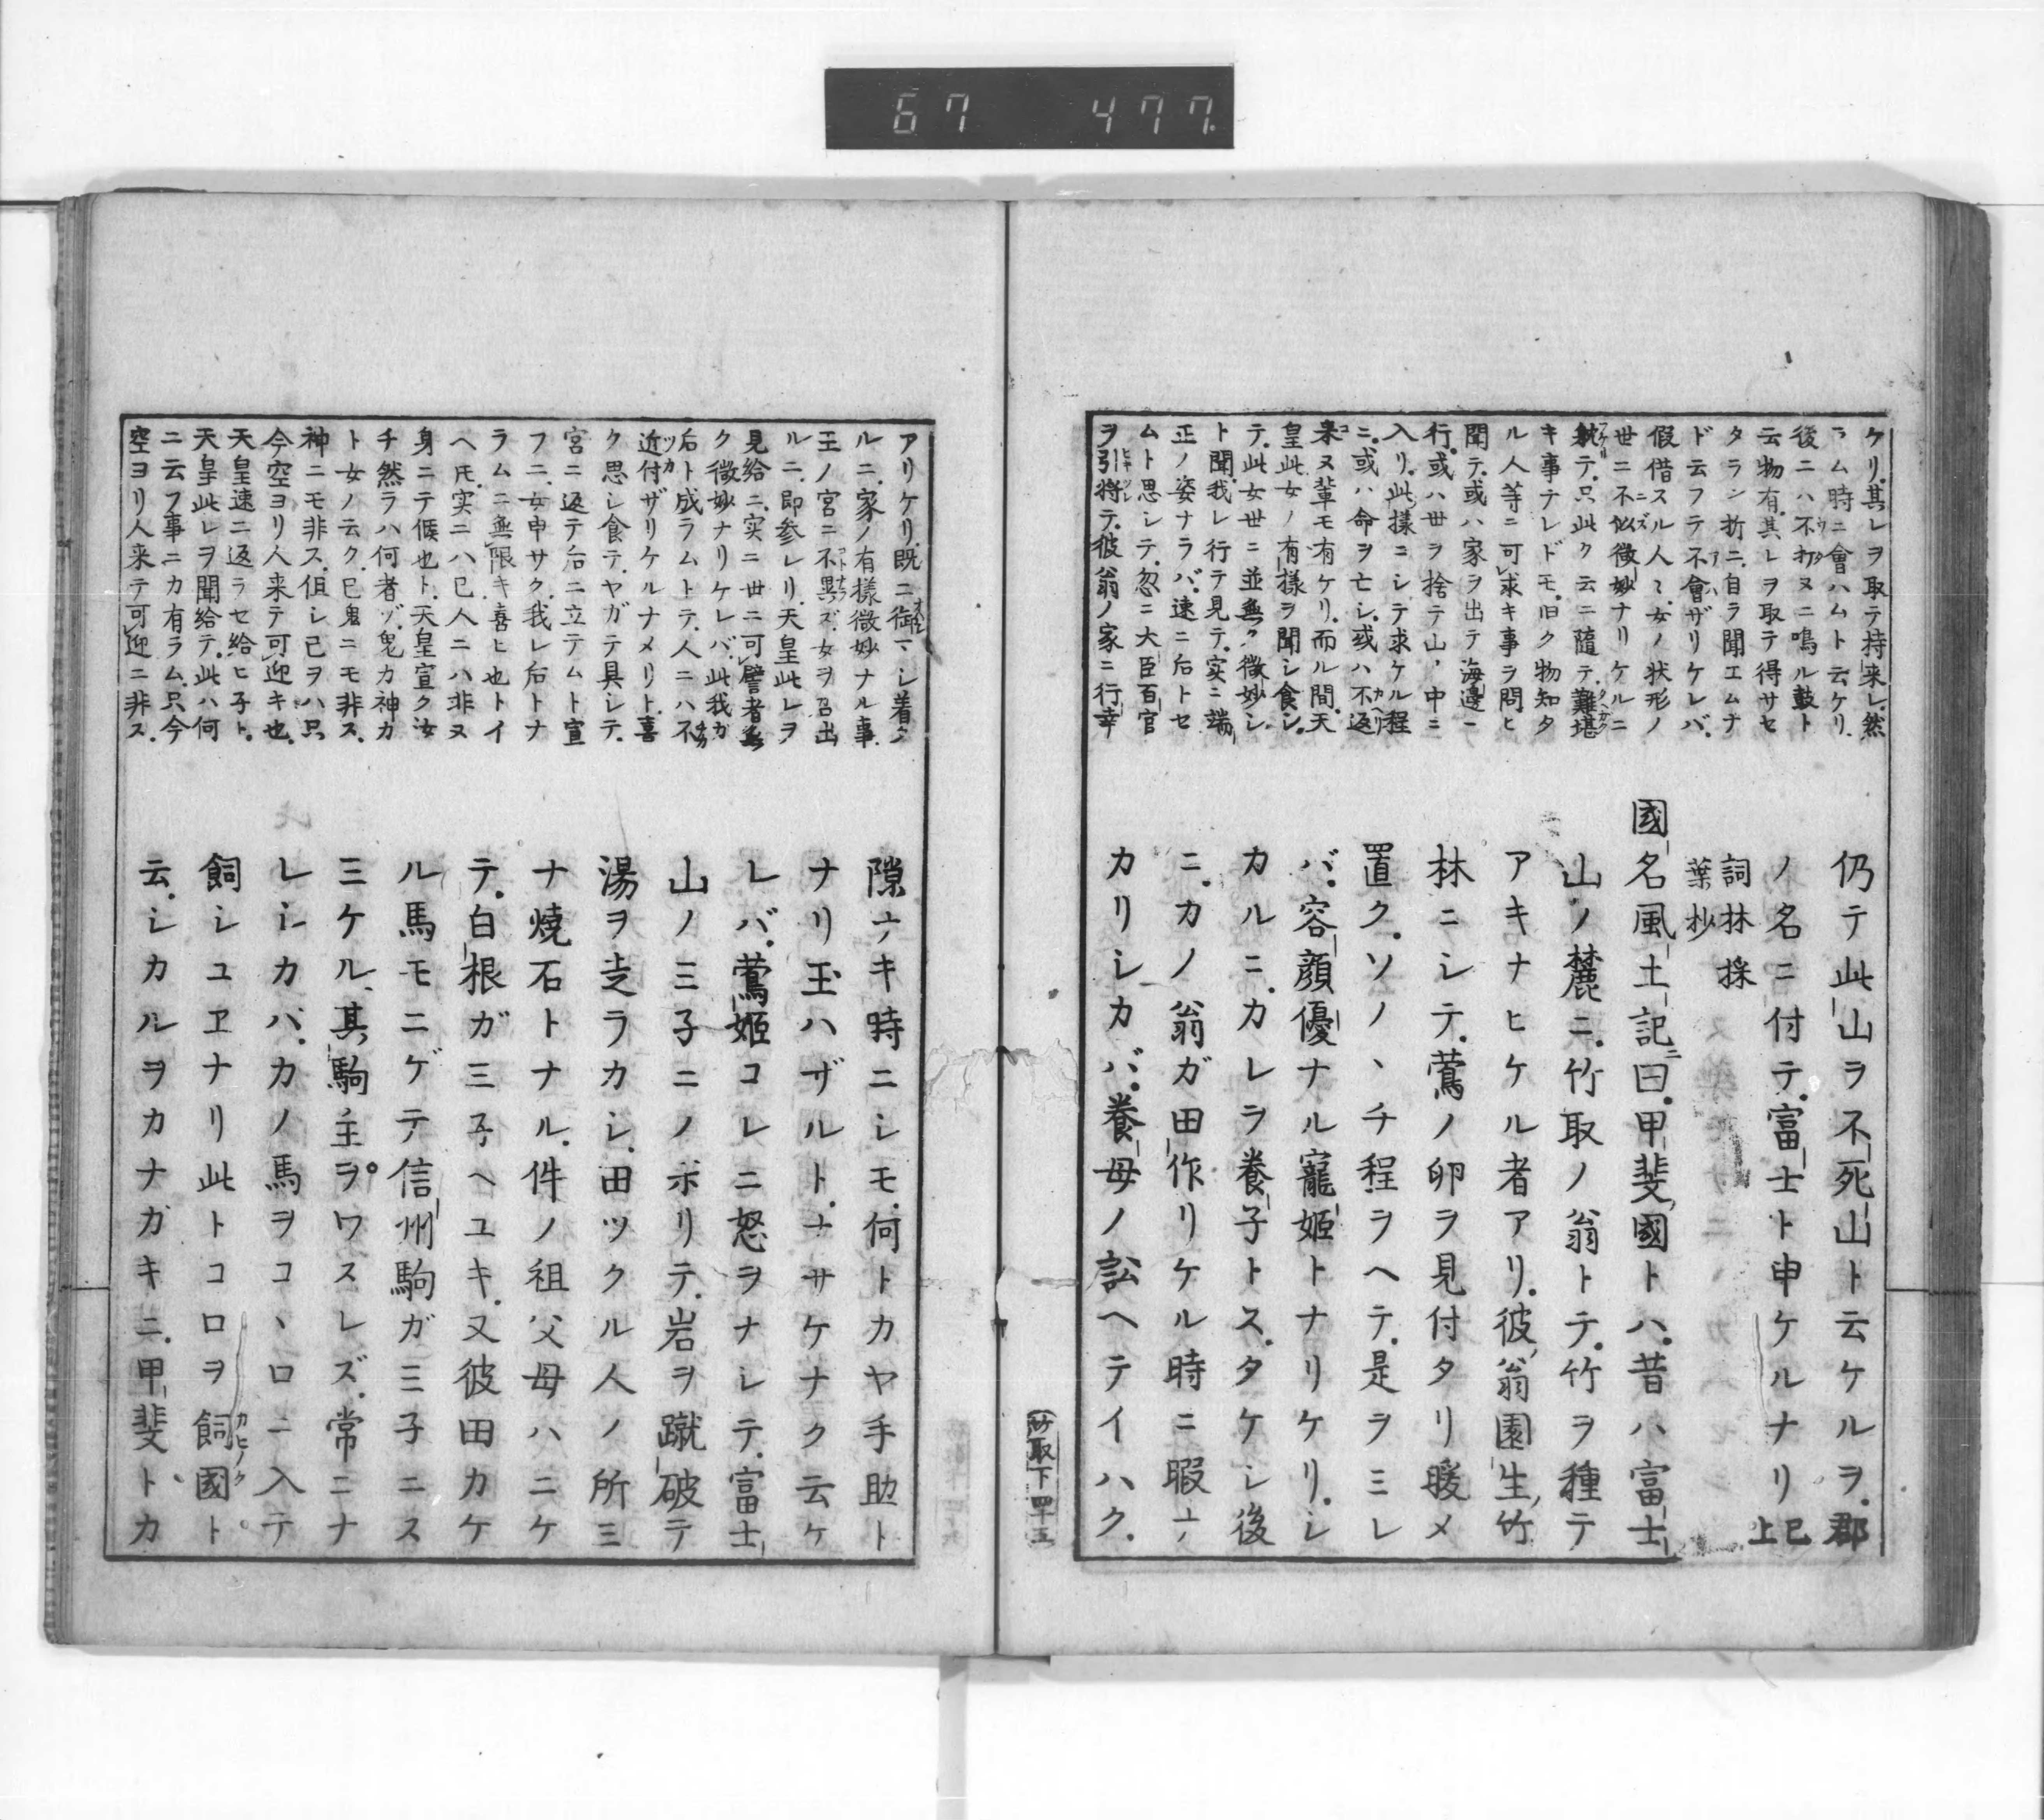 67 477
ケリ其レヲ取テ持来レ然
ラム時ニ會ハムト云ケリ
後ニハ不打ヌニ鳴ル鼓ト
云物有其レヲ取テ得サセ
タラン折ニ自ラ聞エムナ
ド云フテ不會ザリケレバ
假借スル人々女ノ状形ノ
世ニ不似微妙ナリケルニ
耽テ只此ク云ニ随テ難堪
キ事テレドモ旧ク物知タ
ル人等ニ可求キ事ヲ問ヒ
聞テ或ハ家ヲ出テ海邊ニ
行或ハ世ヲ捨テ山ノ中ニ
入リ此様ニシテ求ケル程
ニ或ハ命ヲ亡シ或ハ不返
来ヌ輩モ有ケリ而ル間天
皇此女ノ有様ヲ聞シ食シ
テ此女世ニ並無ク微妙シ
ト聞我レ行テ見テ実ニ端
正ノ姿ナラバ速ニ后トセ
ムト思シテ忽ニ大臣百官
ヲ引将テ彼翁ノ家ニ行幸
仍テ此山ヲ不死山ト云ケルヲ郡
ノ名ニ付テ富士ト申ケルナリ已上
詞林採
葉抄
國名風土記ニ曰甲斐國トハ昔ハ富士
山ノ麓ニ竹取ノ翁トテ竹ヲ種テ
アキナヒケル者アリ彼翁園生竹
林ニシテ鶯ノ卵ヲ見付タリ暖メ
置クソノヽチ程ヲヘテ是ヲミレ
バ容顔優ナル寵姫トナリケリシ
カルニカレヲ養子トスタケシ後
ニカノ翁ガ田作リケル時ニ暇ナ
カリシカバ養母ノ訟ヘテイハク
竹取下四十五
アリケリ既ニ御マシ着ク
ルニ家ノ有様微妙ナル事
王ノ宮ニ不異ズ女ヲ召出
ルニ即参レリ天皇此レヲ
見給ニ実ニ世ニ可譬者無
ク微妙ナリケレバ此我カ
后ト成ラムトテ人ニハ不
近付ザリケルナメリト喜
ク思シ食テヤガテ具シテ
宮ニ返テ后ニ立テムト宣
フニ女申サク我レ后トナ
ラムニ無限キ喜ヒ也トイ
ヘ𪜈実ニハ己人ニハ非ヌ
身ニテ候也ト天皇宣ク汝
チ然ラハ何者ゾ鬼カ神カ
ト女ノ云ク己鬼ニモ非ス
神ニモ非ス但シ己ヲハ只
今空ヨリ人来テ可迎キ也
天皇速ニ返ラセ給ヒ子ト
天皇此レヲ聞給テ此ハ何
ニ云フ事ニカ有ラム只今
空ヨリ人来テ可迎ニ非ス
隙ナキ時ニシモ何トカヤ手助ト
ナリ玉ハザルトナサケナク云ケ
レバ鶯姫コレニ怒ヲナシテ富士
山ノ三子ニノボリテ岩ヲ蹴破テ
湯ヲ走ラカシ田ツクル人ノ所三
ナ焼石トナル件ノ祖父母ハニケ
テ白根ガ三子ヘユキ又彼田カケ
ル馬モニゲテ信州駒ガ三子ニス
ミケル其駒主ヲワスレズ常ニナ
レシカバカノ馬ヲコヽロニ入テ
飼シユヱナリ此トコロヲ飼國ト
云シカルヲカナガキニ甲斐トカ